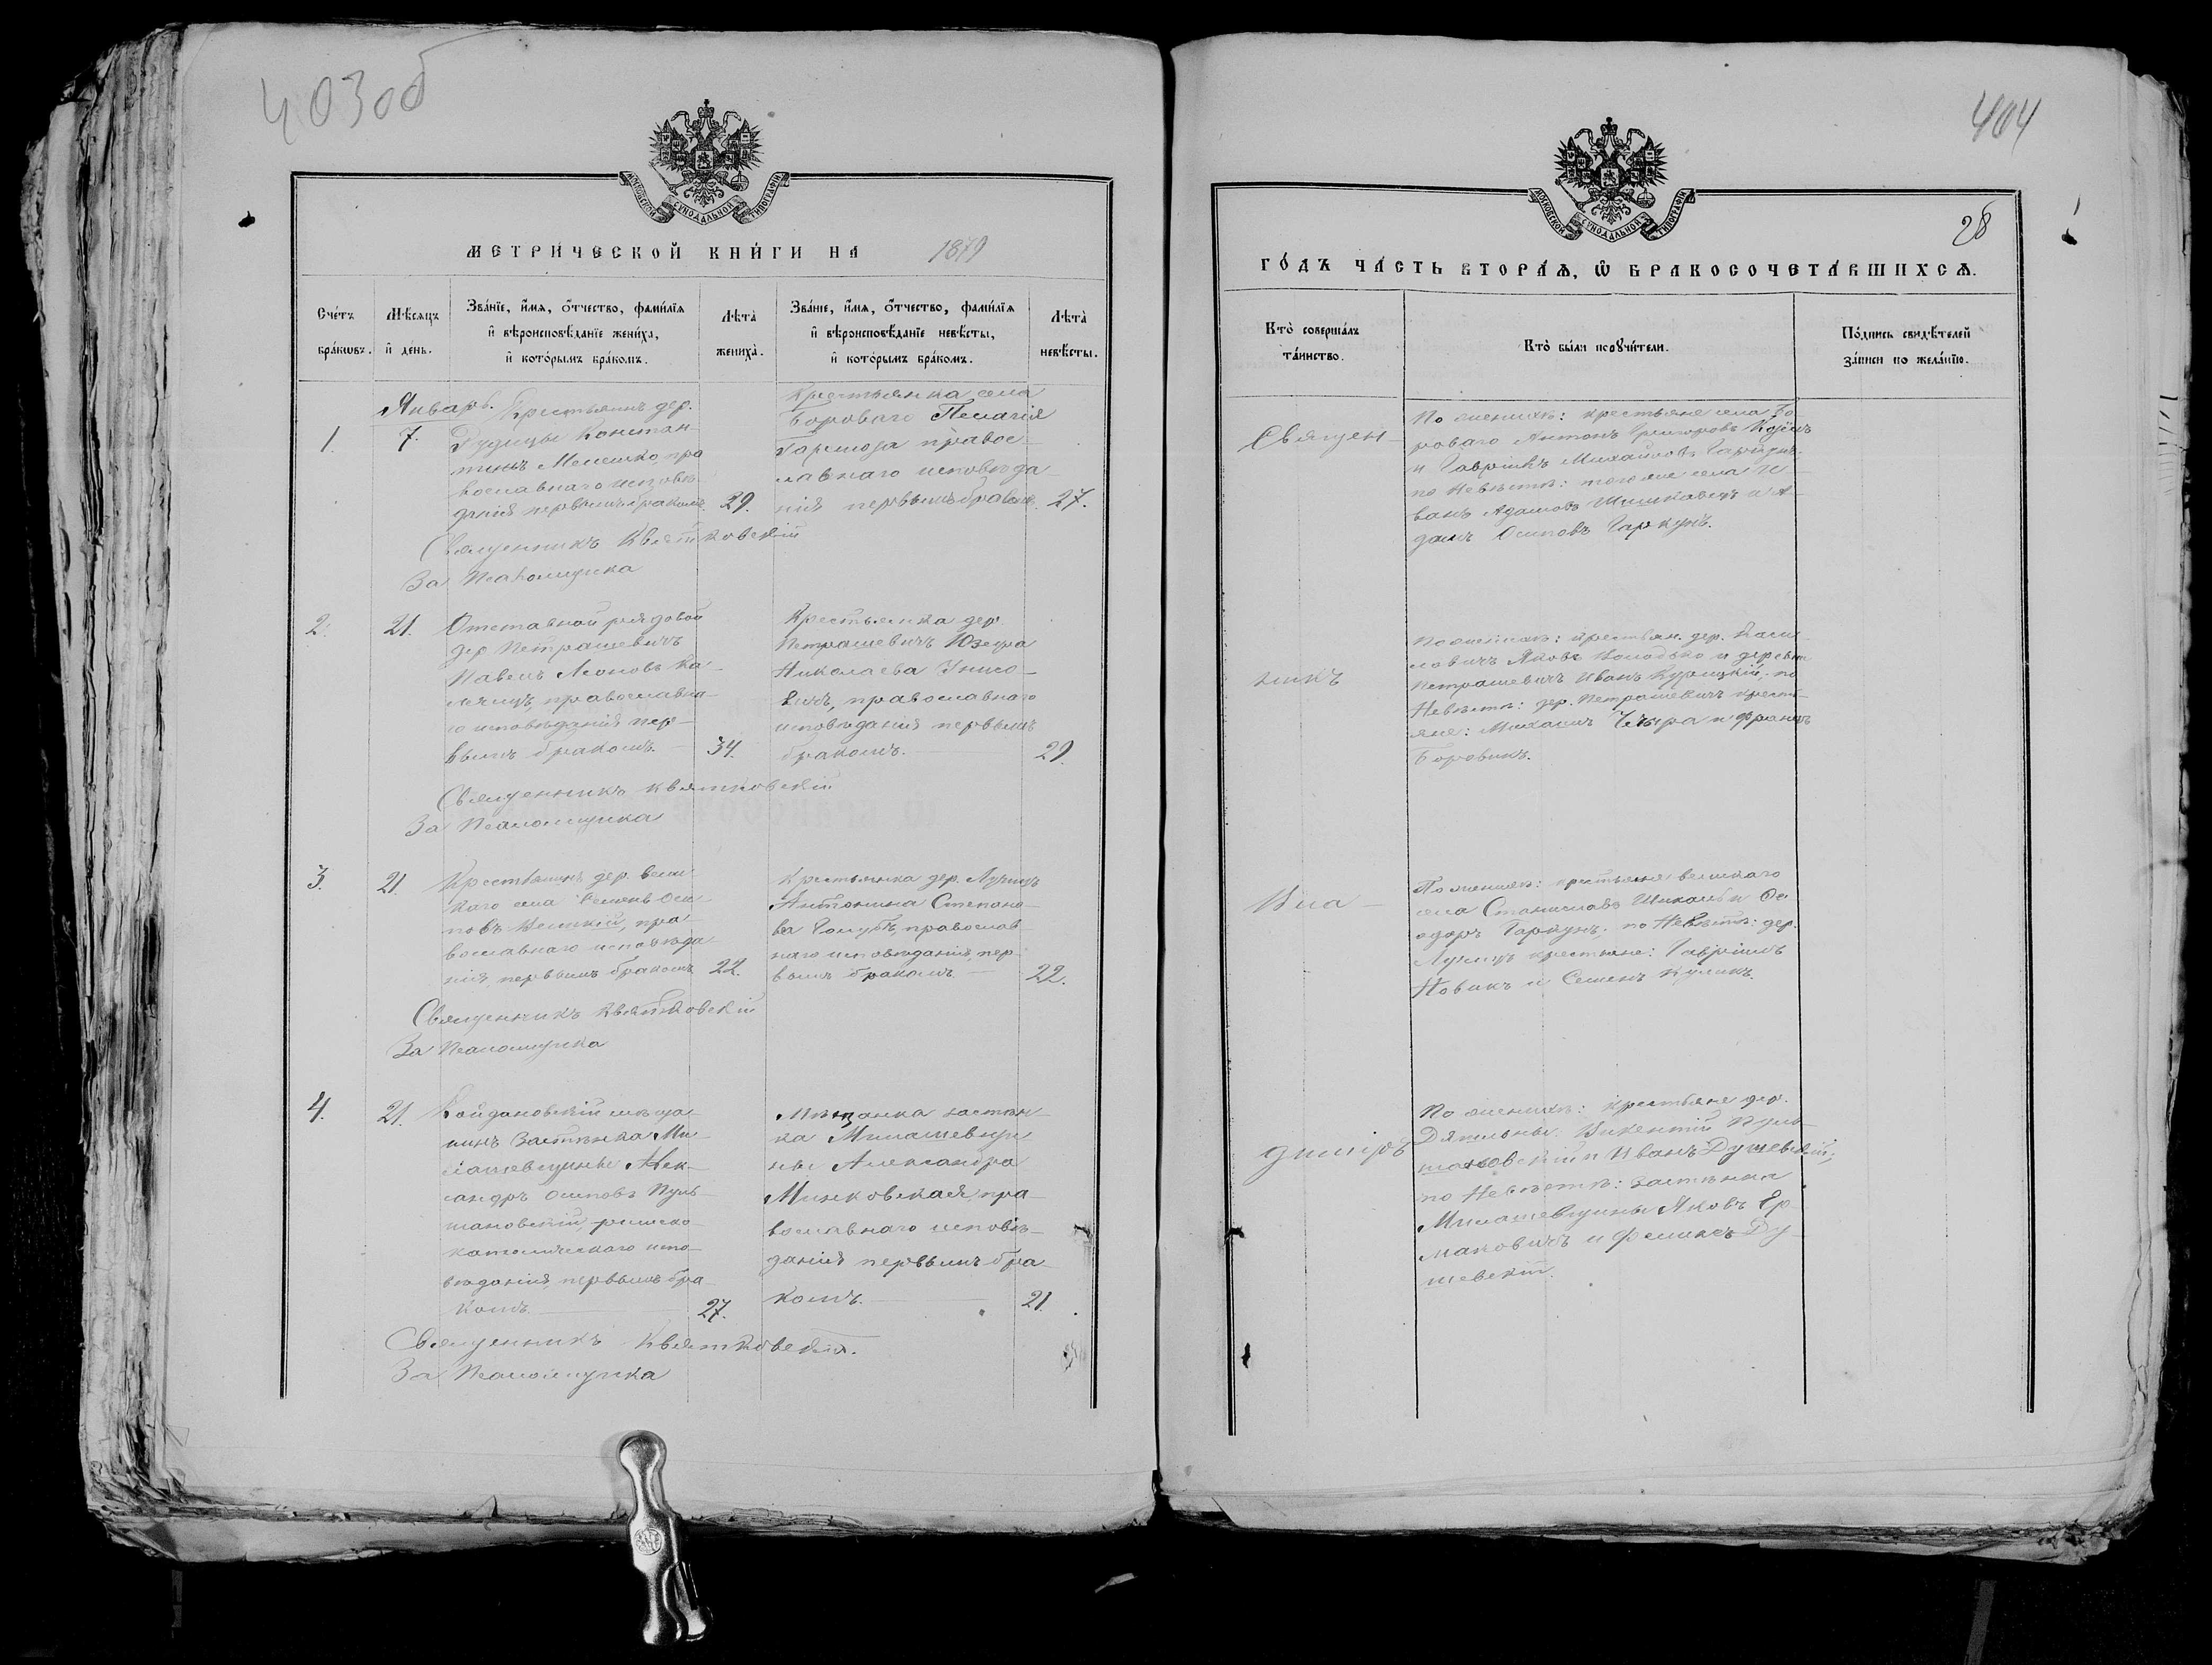 403об
МОСКОВСКОЙ СѴНОДАЛЬНОЙ ТИПОГРАФІИ
МЕТРИ́ЧЕСКОЙ КНИ́ГИ НА 1879
Сче́тъ бра́кωвъ.
Мѣ́сяцъ и҆ де́нь.
Зва́нїе, и҆́мя, ѻ҆́тчество, фами́лїя
и҆ вѣроисповѣ́данїе жениха̀,
и҆ кото́рымъ бра́комъ.
Лѣта̀ жениха̀.
Зва́нїе, и҆́мя, ѻ҆́тчество, фами́лїя
и҆ вѣроисповѣ́данїе невѣ́сты,
и҆ кото́рымъ бра́комъ.
Лѣта̀ невѣ́сты.
Январь.
1.
7.
Крестьянинъ дер.
Рудицы Констан-
тинъ Мелешко, пра
вославнаго исповѣ
данія первымъ бракомъ.
29.
Крестьянка села
Бороваго Пелагія
православнаго исповѣда-
нія первымъ бракомъ
27.
Священникъ Квятковскій
За Псаломщика
2.
21.
Отставной рядовой
дер Петрашевичъ
Павелъ Леоновъ Ка-
православна-
го исповѣданія пер-
вымъ бракомъ.
34.
Крестьянка дер
Петрашевичъ Юзефа
Николаева
православнаго
исповѣданія первымъ
бракомъ.
29.
Священникъ Квятковскій
За Псаломщика
3.
21.
Крестьянинъ дер. Вели-
каго села Семенъ Оси-
повъ пра
вославнаго исповѣда
нія, первымъ бракомъ
22.
Крестьянка дер. Лучицъ
Антонина Степано-
ва Голубъ, православ
наго исповѣданія, пер-
вымъ бракомъ
22.
Священникъ Квятковскій
За Псаломщика
4.
21.
Койдановскій мѣща-
нинъ застѣнка Ми-
лашевщины Алек-
сандръ Осиповъ Пуль-
мановскій, римско-
католическаго испо-
вѣданія, первымъ бра-
комъ.
27.
Мѣщанка застѣн-
ка Милашевщи-
ны Александра
Минковская, пра-
вославнаго исповѣ-
данія первымъ бра-
комъ.
21.
Священникъ Квятковскій.
За Псаломщика
404
28
МОСКОВСКОЙ СѴНОДАЛЬНОЙ ТИПОГРАФІИ
ГО́ДЪ ЧА́СТЬ ВТОРА́Я, Ѡ҆ БРАКОСОЧЕТА́ВШИХСЯ.
Кто̀ соверша́лъ та́инство.
Кто̀ бы́ли порꙋчи́тели.
По́дпись свидѣ́телей за́писи по жела́нїю.
Священ-
По женихѣ: крестьяне села Бо-
роваго Антонъ Григоровъ
и Гавріилъ Михайловъ
по Невѣстѣ: того же села И-
ванъ Адамовъ и А-
дамъ Осиповъ Гаркунъ.
никъ
По женихѣ: крестьян. дер.
Яковъ Колодько и деревни
Петрашевичъ Иванъ по
Невѣстѣ: дер. Петрашевичъ кресть-
яне: Михаилъ и Францъ
Боровикъ.
Вла-
По женихѣ: крестьяне великаго
села Станиславъ и Ѳе
одоръ Гаркунъ; по Невѣстѣ: дер.
Лучицъ крестьяне: Гавріилъ
Новикъ и Семенъ Куликъ.
диміръ
По женихѣ: крестьяне дер.
Викентій Пуль-
мановскій и Иванъ Душевскій;
по Невѣстѣ: застѣнка
Милашевщины Яковъ Ер-
маковичъ и Феликсъ Ду-
шевскій.